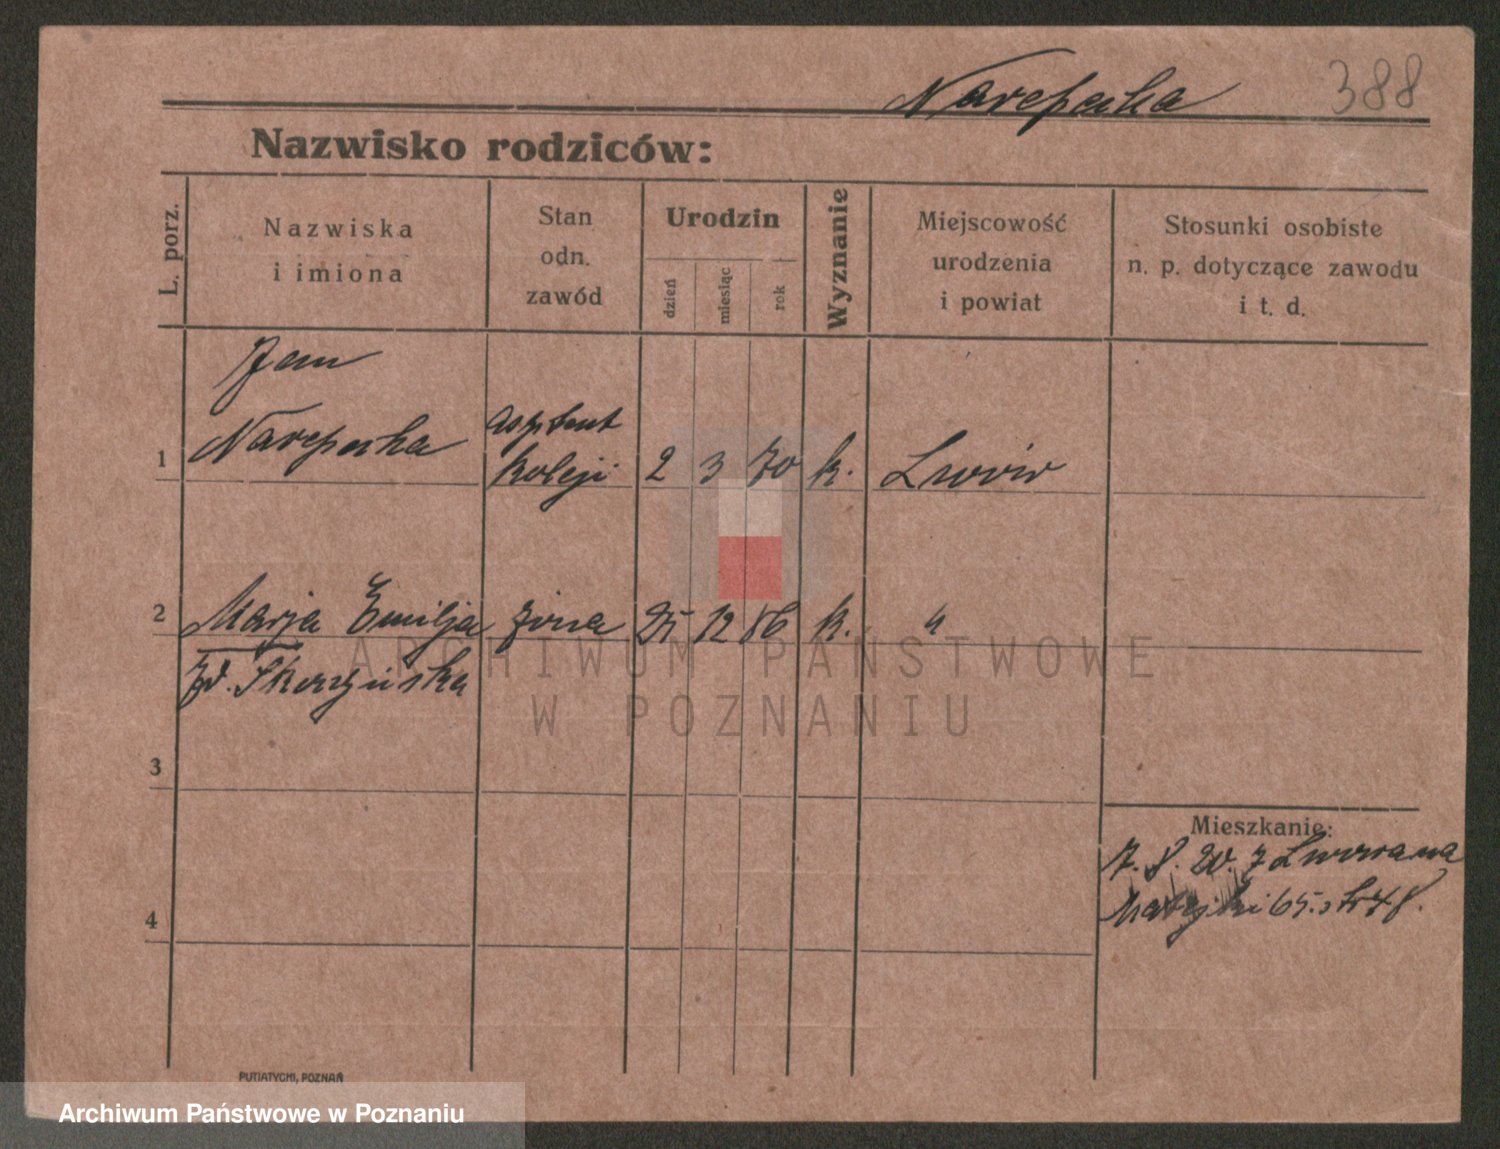 388
Nazwisko rodziców:
L. porz.
Nazwiska
i imiona
Stan
odn.
zawód
Urodzin
dzień
miesiąc
rok
Wyznanie
Miejscowość
urodzenia
i powiat
Stosunki osobiste
n. p. dotyczące zawodu
i t. d.
Jan
1
koleji 2 3 70 k. Lwów
2 Marja Emilja żona 25 12 86 k. "
Skarzyńska
3
Mieszkanie:
7. 8. 20. z Lwowa na
65.
4
PUTIATYCKI, POZNAŃ
ARCHIWUM PAŃSTWOWE
W POZNANIU
Archiwum Państwowe w Poznaniu